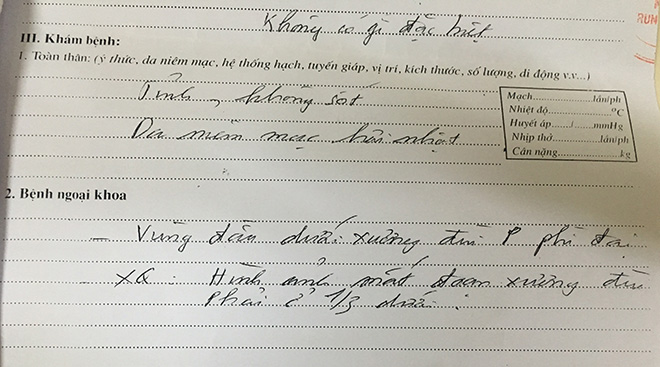 Không có gì đặc biệt
RUN
III. Khám bệnh:
1. Toàn thân: (ý thức, da niêm mạc, hệ thống hạch, tuyến giáp, vị trí, kích thước, số lượng, di động v.v...)
Tỉnh, không sốt
Da niêm mạc hơi nhợt
Mạch..................lần/ph
Nhiệt độ..................°C
Huyết áp....../......mmHg
Nhịp thở..................lần/ph
Cân nặng..................kg
2. Bệnh ngoại khoa
- Vùng đầu dưới xương đùi P phì đại
- XQ: Hình ảnh mất đoạn xương đùi
Phải ở 1/3 dưới.